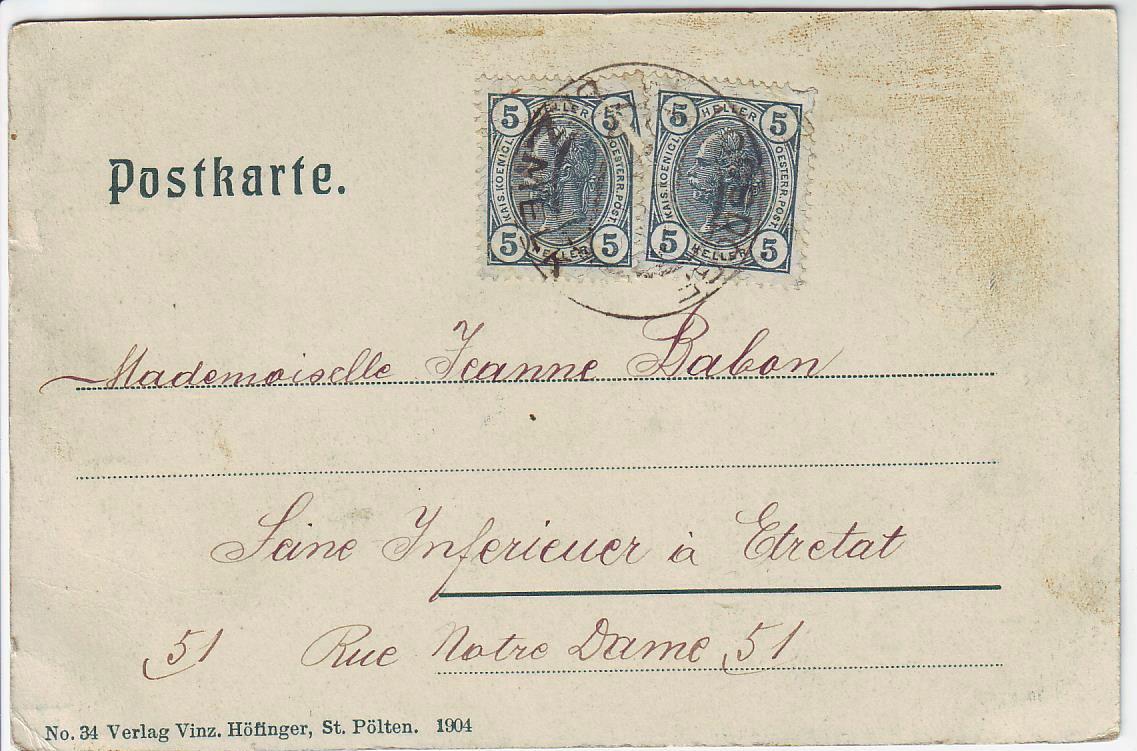 5 HELLER 5
KAIS. KOENIGL.
OESTERR. POST.
5 HELLER 5
5 HELLER 5
KAIS. KOENIGL.
OESTERR. POST.
5 HELLER 5
Postkarte.
Mademoiselle Jeanne Babon
Seine Inferieuer à Etretat
51 Rue Notre Dame 51
No. 34 Verlag Vinz. Höfinger, St. Pölten. 1904